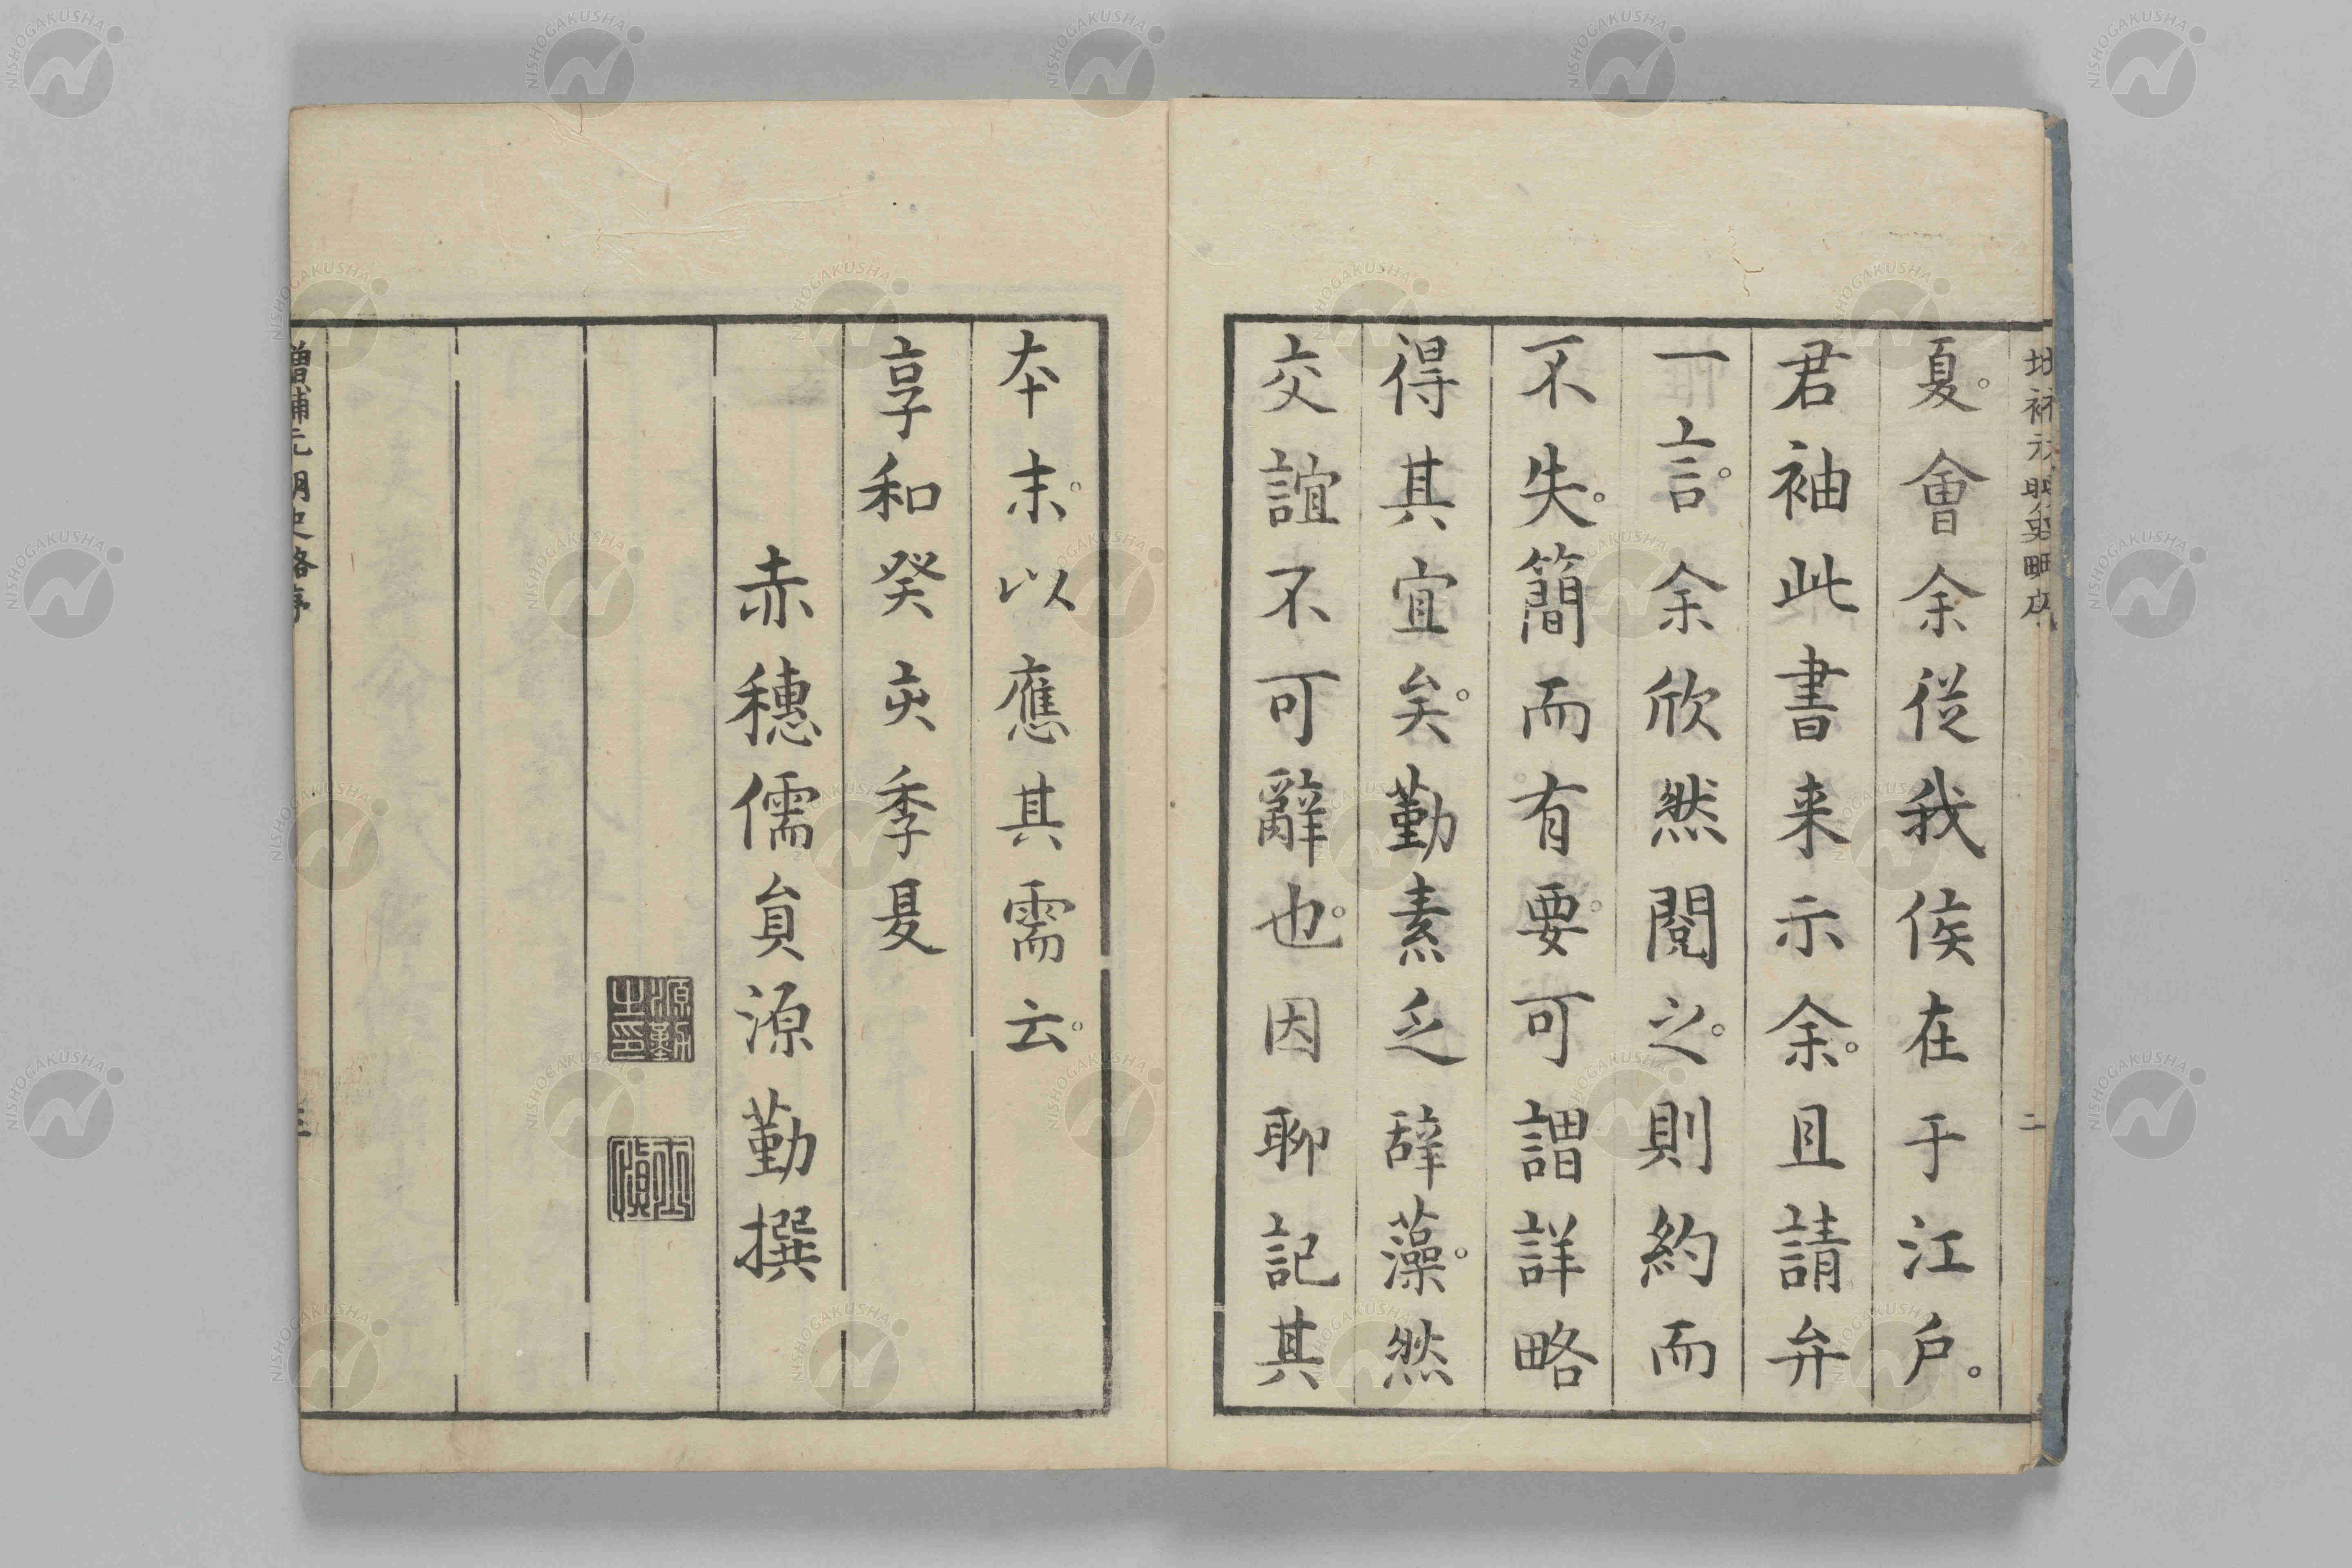 増補元明史略序
二
夏。會余從我侯在于江戶。
君袖此書来示余。且請弁
一言。余欣然閱之。則約而
不失。簡而有要。可謂詳略
得其宜矣。勤素乏辭藻。然
交誼不可辭也。因聊記其
夲末。以應其需云。
享和癸亥季夏
赤穗儒員源勤撰
源勤之印
增補元明史略序
三
NISHOGAKUSHA